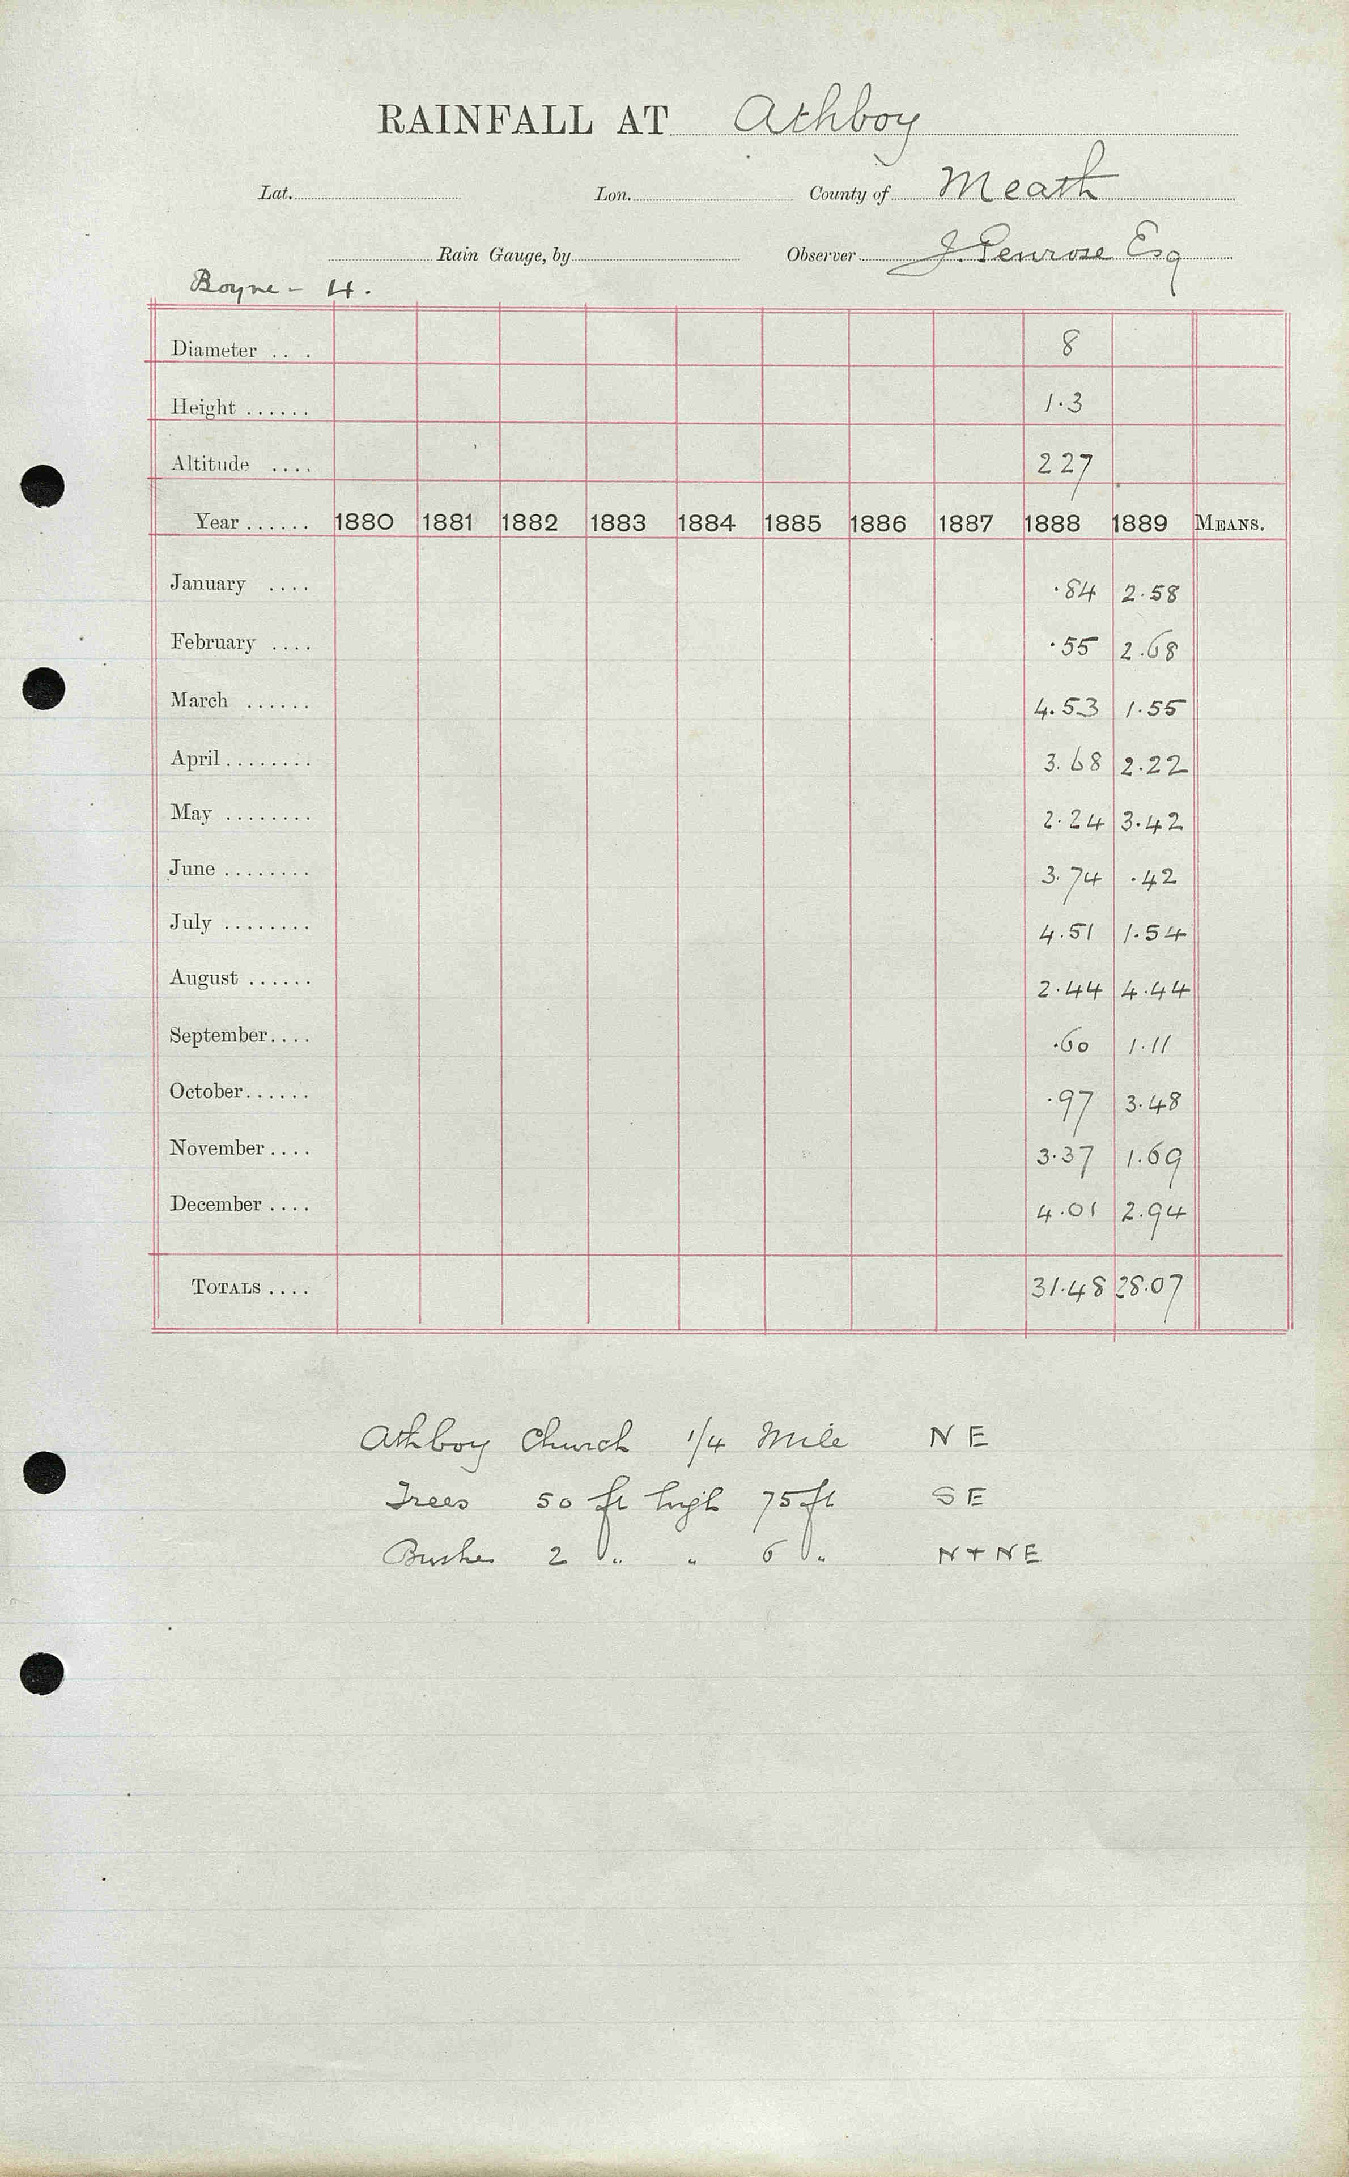 RAINFALL AT Athboy
Lat. Lon. County of Meath
Rain Gauge, by Observer J. Penrose Esq
Boyne - 4.
Diameter . . . 8
Height ...... 1.3
Altitude .... 227
Year ...... 1880 1881 1882 1883 1884 1885 1886 1887 1888 1889 MEANS.
January .... .84 2.58
February .... .55 2.68
March ...... 4.53 1.55
April ........ 3.68 2.22
May ........ 2.24 3.42
June ........ 3.74 .42
July ........ 4.51 1.54
August ...... 2.44 4.44
September .... .60 1.11
October ...... .97 3.48
November .... 3.37 1.69
December .... 4.01 2.94
TOTALS .... 31.48 28.07
Athboy Church 1/4 Mile NE
Trees 50 ft high 75 ft SE
Bushes 2 " " 6 " N + NE